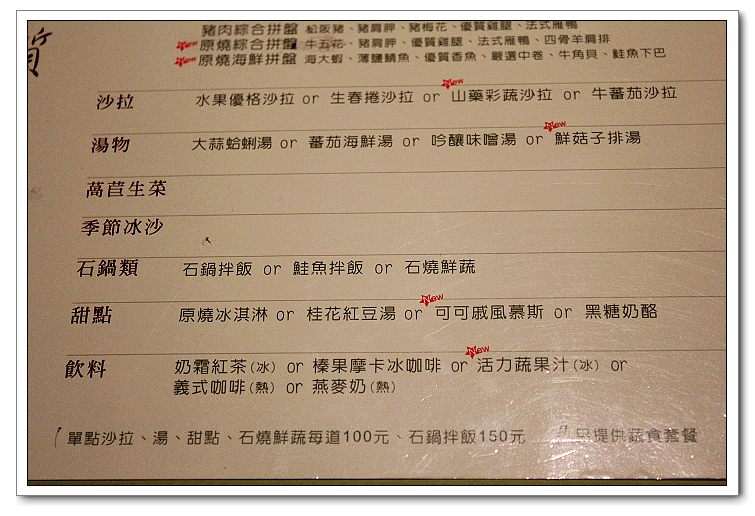 質
豬肉綜合拼盤 松阪豬、豬肩胛、豬梅花、優質雞腿、法式雁鴨
New 原燒綜合拼盤 牛五花、豬肩胛、優質雞腿、法式雁鴨、四骨羊肩排
New 原燒海鮮拼盤 海大蝦、薄鹽鯖魚、優質香魚、嚴選中卷、牛角貝、鮭魚下巴
沙拉 水果優格沙拉 or 生春捲沙拉 or New 山藥彩蔬沙拉 or 牛蕃茄沙拉
湯物 大蒜蛤蜊湯 or 蕃茄海鮮湯 or 吟釀味噌湯 or New 鮮菇子排湯
萵苣生菜
季節冰沙
石鍋類 石鍋拌飯 or 鮭魚拌飯 or 石燒鮮蔬
甜點 原燒冰淇淋 or 桂花紅豆湯 or New 可可戚風慕斯 or 黑糖奶酪
飲料 奶霜紅茶(冰) or 榛果摩卡冰咖啡 or New 活力蔬果汁(冰) or
義式咖啡(熱) or 燕麥奶(熱)
單點沙拉、湯、甜點、石燒鮮蔬每道100元、石鍋拌飯150元 提供蔬食套餐